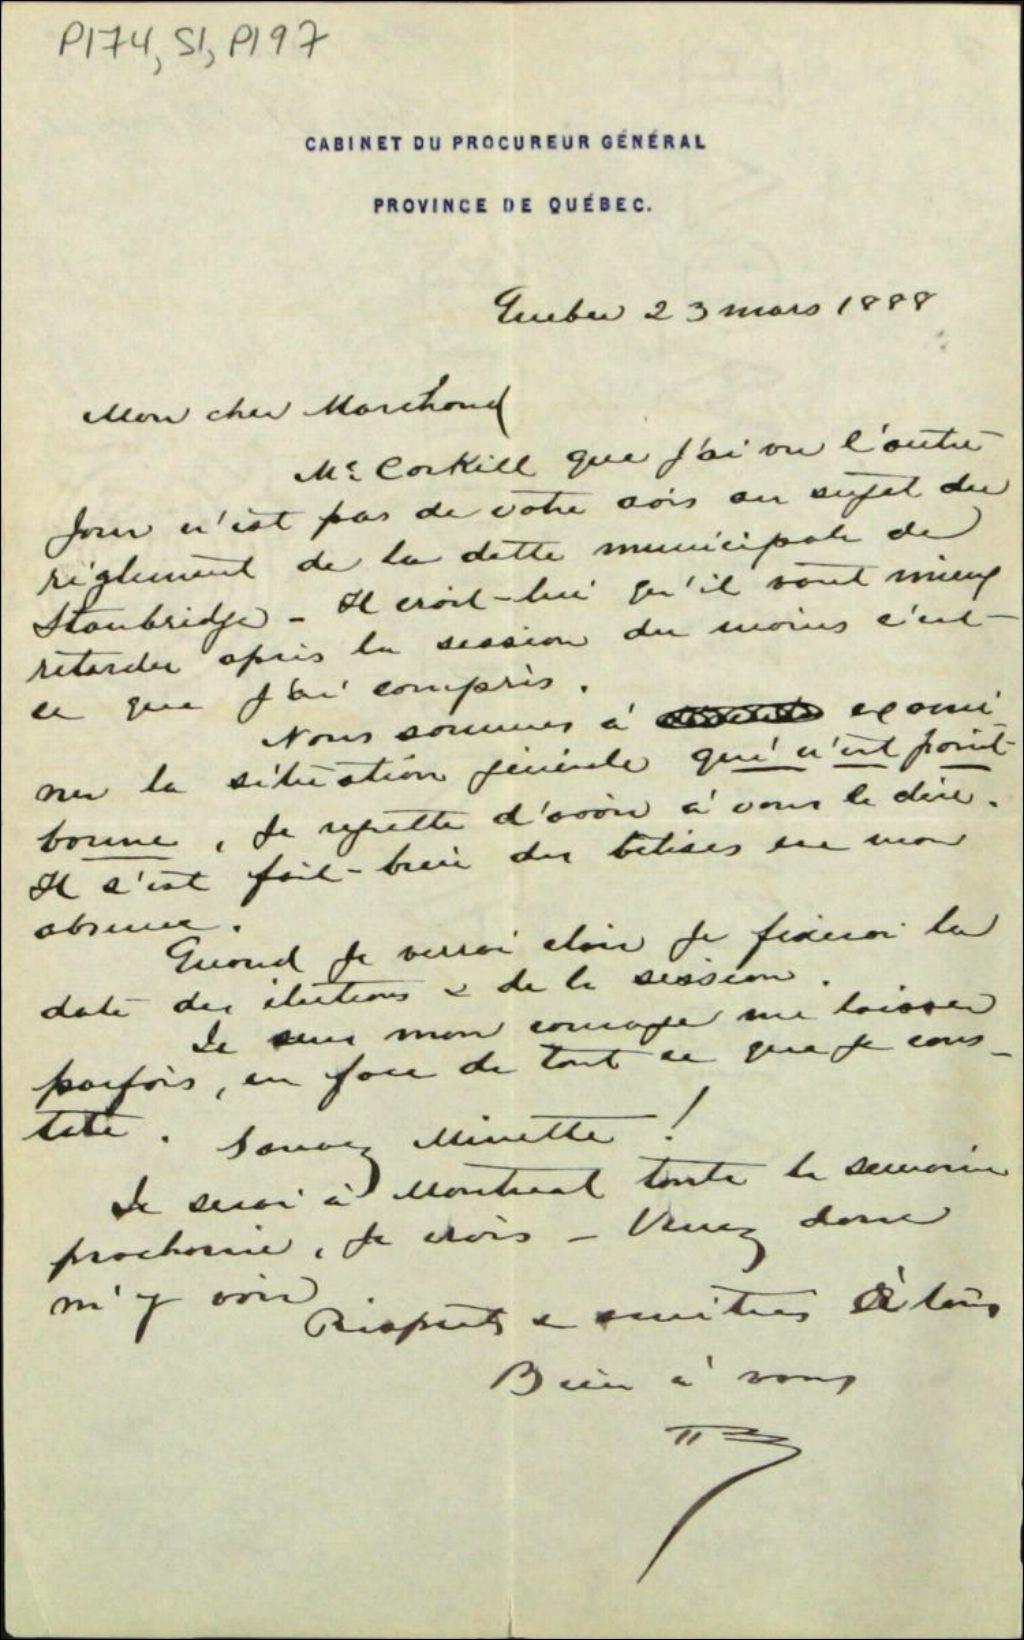 P174, S1, P197
CABINET DU PROCUREUR GÉNÉRAL
PROVINCE DE QUÉBEC.
Quebec 23 mars 1888
Mon cher Marchand
Mc Corkill que j'ai vu l'autre
jour n'est pas de votre avis au sujet du
règlement de la dette municipale de
Stanbridge - Il croit-lui qu'il vaut mieux
retarder après la session du moins c'est
ce que j'ai compris.
Nous sommes à exami
ner la situation générale qui n'est point
bonne, je regrette d'avoir à vous le dire.
Il s'est fait-bien des bêtises en mon
absence.
Quand je verrai clair je fixerai la
date des élections & de la session.
Je sens mon courage me laisser
parfois, en face de tout ce que je cons-
tate. Sauvez Minette !
Je serai à Montreal toute la semaine
prochaine, je crois - Venez donc
m'y voir
Respects & amitiés à tous
Bien à vous